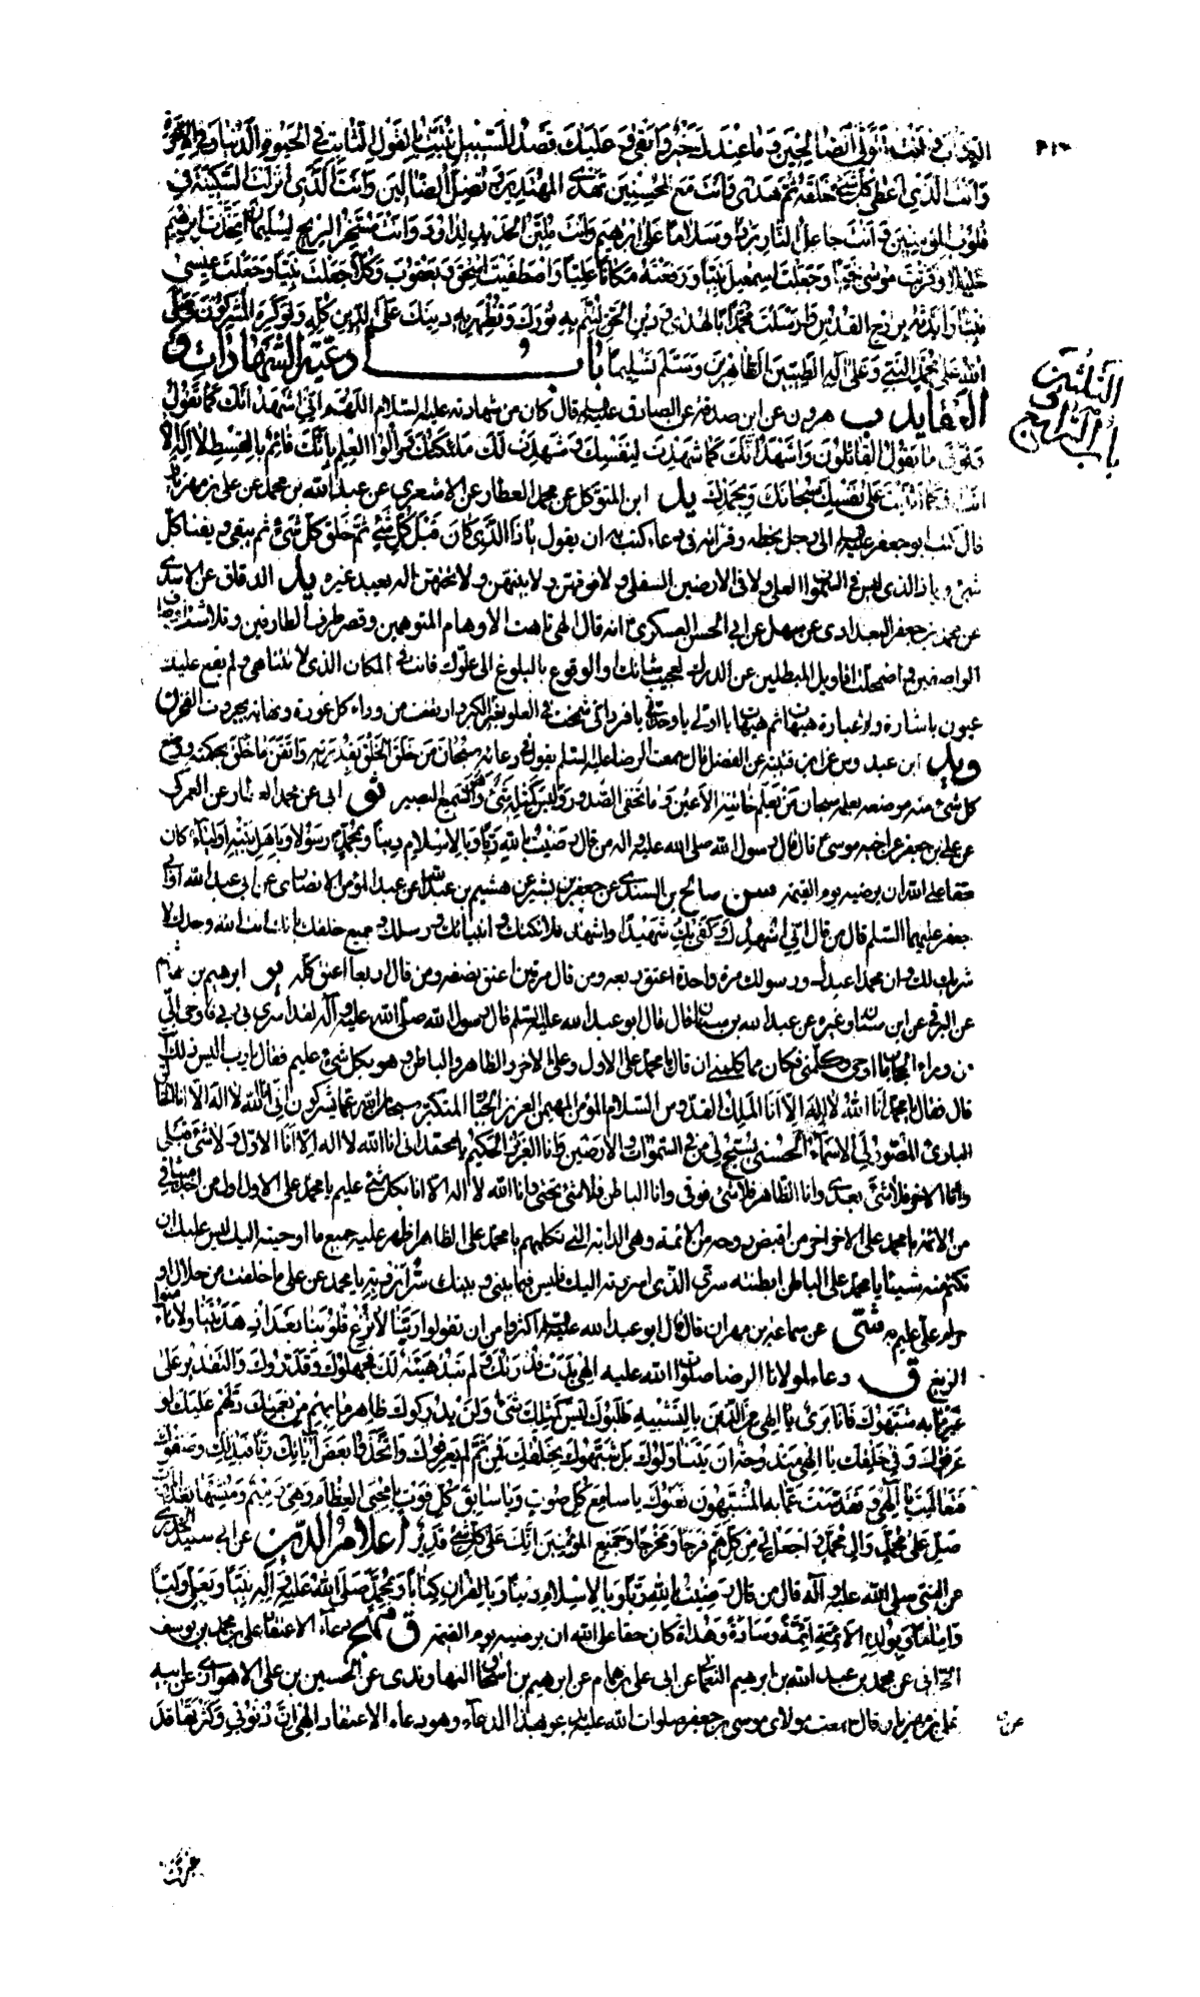 وانت الذي اعطى كل شئ خلقه ثم هدى وانت مع المحسنين تهدي المهتدين وتضل الضالين وانت الذي انزلت السكينة في
قلوب المؤمنين وانت جاعل النار بردا وسلاما على ابرهيم وانت ملين الحديد لداود وانت مسخر الريح لسليمان اتخذت ابرهيم
خليلا وقربت موسى نجيا وجعلت اسمعيل نبيا ورفعته مكانا عليا واصطفيت اسحق ويعقوب وكلا جعلت نبيا وجعلت عيسى
نبيا وايدته بروح القدس وارسلت محمدا بالهدى ودين الحق لتتم به نورك وتظهر به دينك على الدين كله ولو كره المشركون
الله على محمد النبي وعلى اله الطيبين الطاهرين وسلم تسليما باب ادعية الشهادات و
العقايد ب هرون عن ابن صدقة عن الصادق عليه السلم قال كان من شهادته عليه السلام اللهم اني اشهد انك كما تقول
وفوق ما يقول القائلون واشهد انك كما شهدت لنفسك وشهدت لك ملائكتك واولوا العلم بانك قائم بالقسط لا اله الا
انت كما اثنيت على نفسك سبحانك وبحمدك يد ابن المتوكل عن محمد العطار عن الاشعري عن عبد الله بن محمد عن علي بن مهزيار
قال كتب ابو جعفر عليه السلم الى رجل بخطه وقراته في دعاء كتب به ان يقول يا ذا الذي كان قبل كل شئ ثم خلق كل شئ ثم يبقى ويفنا كل
شئ ويا ذا الذي ليس في السموات العلى ولا في الارضين السفلى ولا فوقهن ولا بينهن ولا تحتهن اله يعبد غيره يد الدقاق عن الاسدي
عن محمد بن جعفر البغدادي عن سهل عن ابي الحسن العسكري انه قال الهي تاهت الاوهام المتوهمين وقصر طرف الطارفين وتلاشت اوصاف
الواصفين واضمحلت اقاويل المبطلين عن الدرك لعجيب شانك والوقوع بالبلوغ الى علوك فانت في المكان الذي لا يتناهى ولم يقع عليك
عيون باشارة ولا عبارة هيهات ثم هيهات يا اولى يا وحداني يا فرداني شمخت في العلو بعز الكبر وارتفعت من وراء كل غورة ونهاية بجبروت الفخر
ويد ابن عبدوس عن ابن قتيبة عن الفضل قال سمعت الرضا عليه السلم يقول في دعائه سبحان من خلق الخلق بقدرته واتقن ما خلق بحكمته ووضع
كل شئ منه موضعه بعلمه سبحان من يعلم خائنة الاعين وما تخفي الصدور وليس كمثله شئ وهو السميع البصير ثو ابي عن محمد العطار عن العمركي
عن علي بن جعفر عن اخيه موسى قال قال رسول الله صلى الله عليه واله من قال رضيت بالله ربا وبالاسلام دينا وبمحمد رسولا وباهل بيته اولياء كان
حقا على الله ان يرضيه يوم القيمة سن صالح بن السندي عن جعفر بن بشير عن هشيم بن عبد الله عن عبد المؤمن الانصاري عن ابي عبد الله او ابي
جعفر عليهما السلم قال من قال اني اشهدك وكفى بك شهيدا واشهد ملائكتك وانبيائك ورسلك وجميع خلقك بانك انت الله وحدك لا
شريك لك وان محمدا عبدك ورسولك مرة واحدة اعتق ربعه ومن قال مرتين اعتق نصفه ومن قال اربعا اعتق كله ير ابرهيم بن هاشم
عن البرقي عن ابن سنان وغيره عن عبد الله بن سنان قال قال ابو عبد الله عليه السلم قال رسول الله صلى الله عليه واله لقد اسرى بي ربي فاوحى الي
من وراء الحجاب ما اوحى وكلمني فكان مما كلمني ان قال يا محمد علي الاول وعلي الاخر والظاهر والباطن وهو بكل شئ عليم فقال يا رب اليس ذلك انت
قال فقال يا محمد انا الله لا اله الا انا الملك القدوس السلام المؤمن المهيمن العزيز الجبار المتكبر سبحان الله عما يشركون اني انا الله لا اله الا انا الخالق
البارئ المصور لي الاسماء الحسنى يسبح لي من في السموات والارضين وانا العزيز الحكيم يا محمد اني انا الله لا اله الا انا الاول ولا شئ قبلي
وانا الاخر فلا شئ بعدي وانا الظاهر فلا شئ فوقي وانا الباطن فلا شئ تحتي وانا الله لا اله الا انا بكل شئ عليم يا محمد علي الاول اول من اخذ ميثاقي
من الائمة يا محمد علي الاخر اخر من اقبض روحه من الائمة وهي الدابة التي تكلمهم يا محمد علي الظاهر اظهر عليه جميع ما اوحيته اليك ليس عليك ان
تكتم منه شيئا يا محمد علي الباطن ابطنته سري الذي اسررته اليك فليس فيما بيني وبينك سر ازويه يا محمد عن علي ما خلقت من حلال او
حرام علي عليم به شي عن سماعة بن مهران قال قال ابو عبد الله عليه السلم اكثروا من ان تقولوا ربنا لا تزغ قلوبنا بعد اذ هديتنا ولا تامنوا
الزيغ ق دعاء لمولانا الرضا صلوات الله عليه الهي بدت قدرتك ولم تبد هيئة لك فجهلوك وقدروك والتقدير على
غير ما به شبهوك فانا برئ يا الهي من الذين بالتشبيه طلبوك ليس كمثلك شئ ولن يدركوك ظاهر ما بهم من نعمتك دلهم عليك لو
عرفوك وفي خلقك يا الهي مندوحة ان يتناولوك بل شبهوك بخلقك فمن ثم لم يعرفوك واتخذوا بعض اياتك ربا فبذلك وصفوك
فتعاليت يا الهي وتقدست عما به المشبهون نعتوك يا سامع كل صوت ويا سابق كل فوت يا محيي العظام وهي رميم ومنشئها بعد الموت
صل على محمد وال محمد واجعل لي من كل هم فرجا ومخرجا وجميع المؤمنين انك على كل شئ قدير اعلام الدين عن ابي سعيد الخدري
عن النبي صلى الله عليه واله قال من قال رضيت بالله ربا وبالاسلام دينا وبالقران كتابا وبمحمد صلى الله عليه واله نبيا وبعلي وليا
واماما وبولده الائمة ائمة وسادة وهداة كان حقا على الله ان يرضيه يوم القيمة ق مهج دعاء الاعتقاد علي بن محمد بن يوسف
الحراني عن محمد بن عبد الله بن ابرهيم النعماني عن ابي علي بن همام عن ابرهيم بن اسحاق النهاوندي عن الحسين بن علي الاهوازي عن ابيه
علي بن مهزيار قال سمعت مولاي موسى بن جعفر صلوات الله عليه يدعو بهذا الدعاء وهو دعاء الاعتقاد الهي ان ذنوبي وكثرتها قد